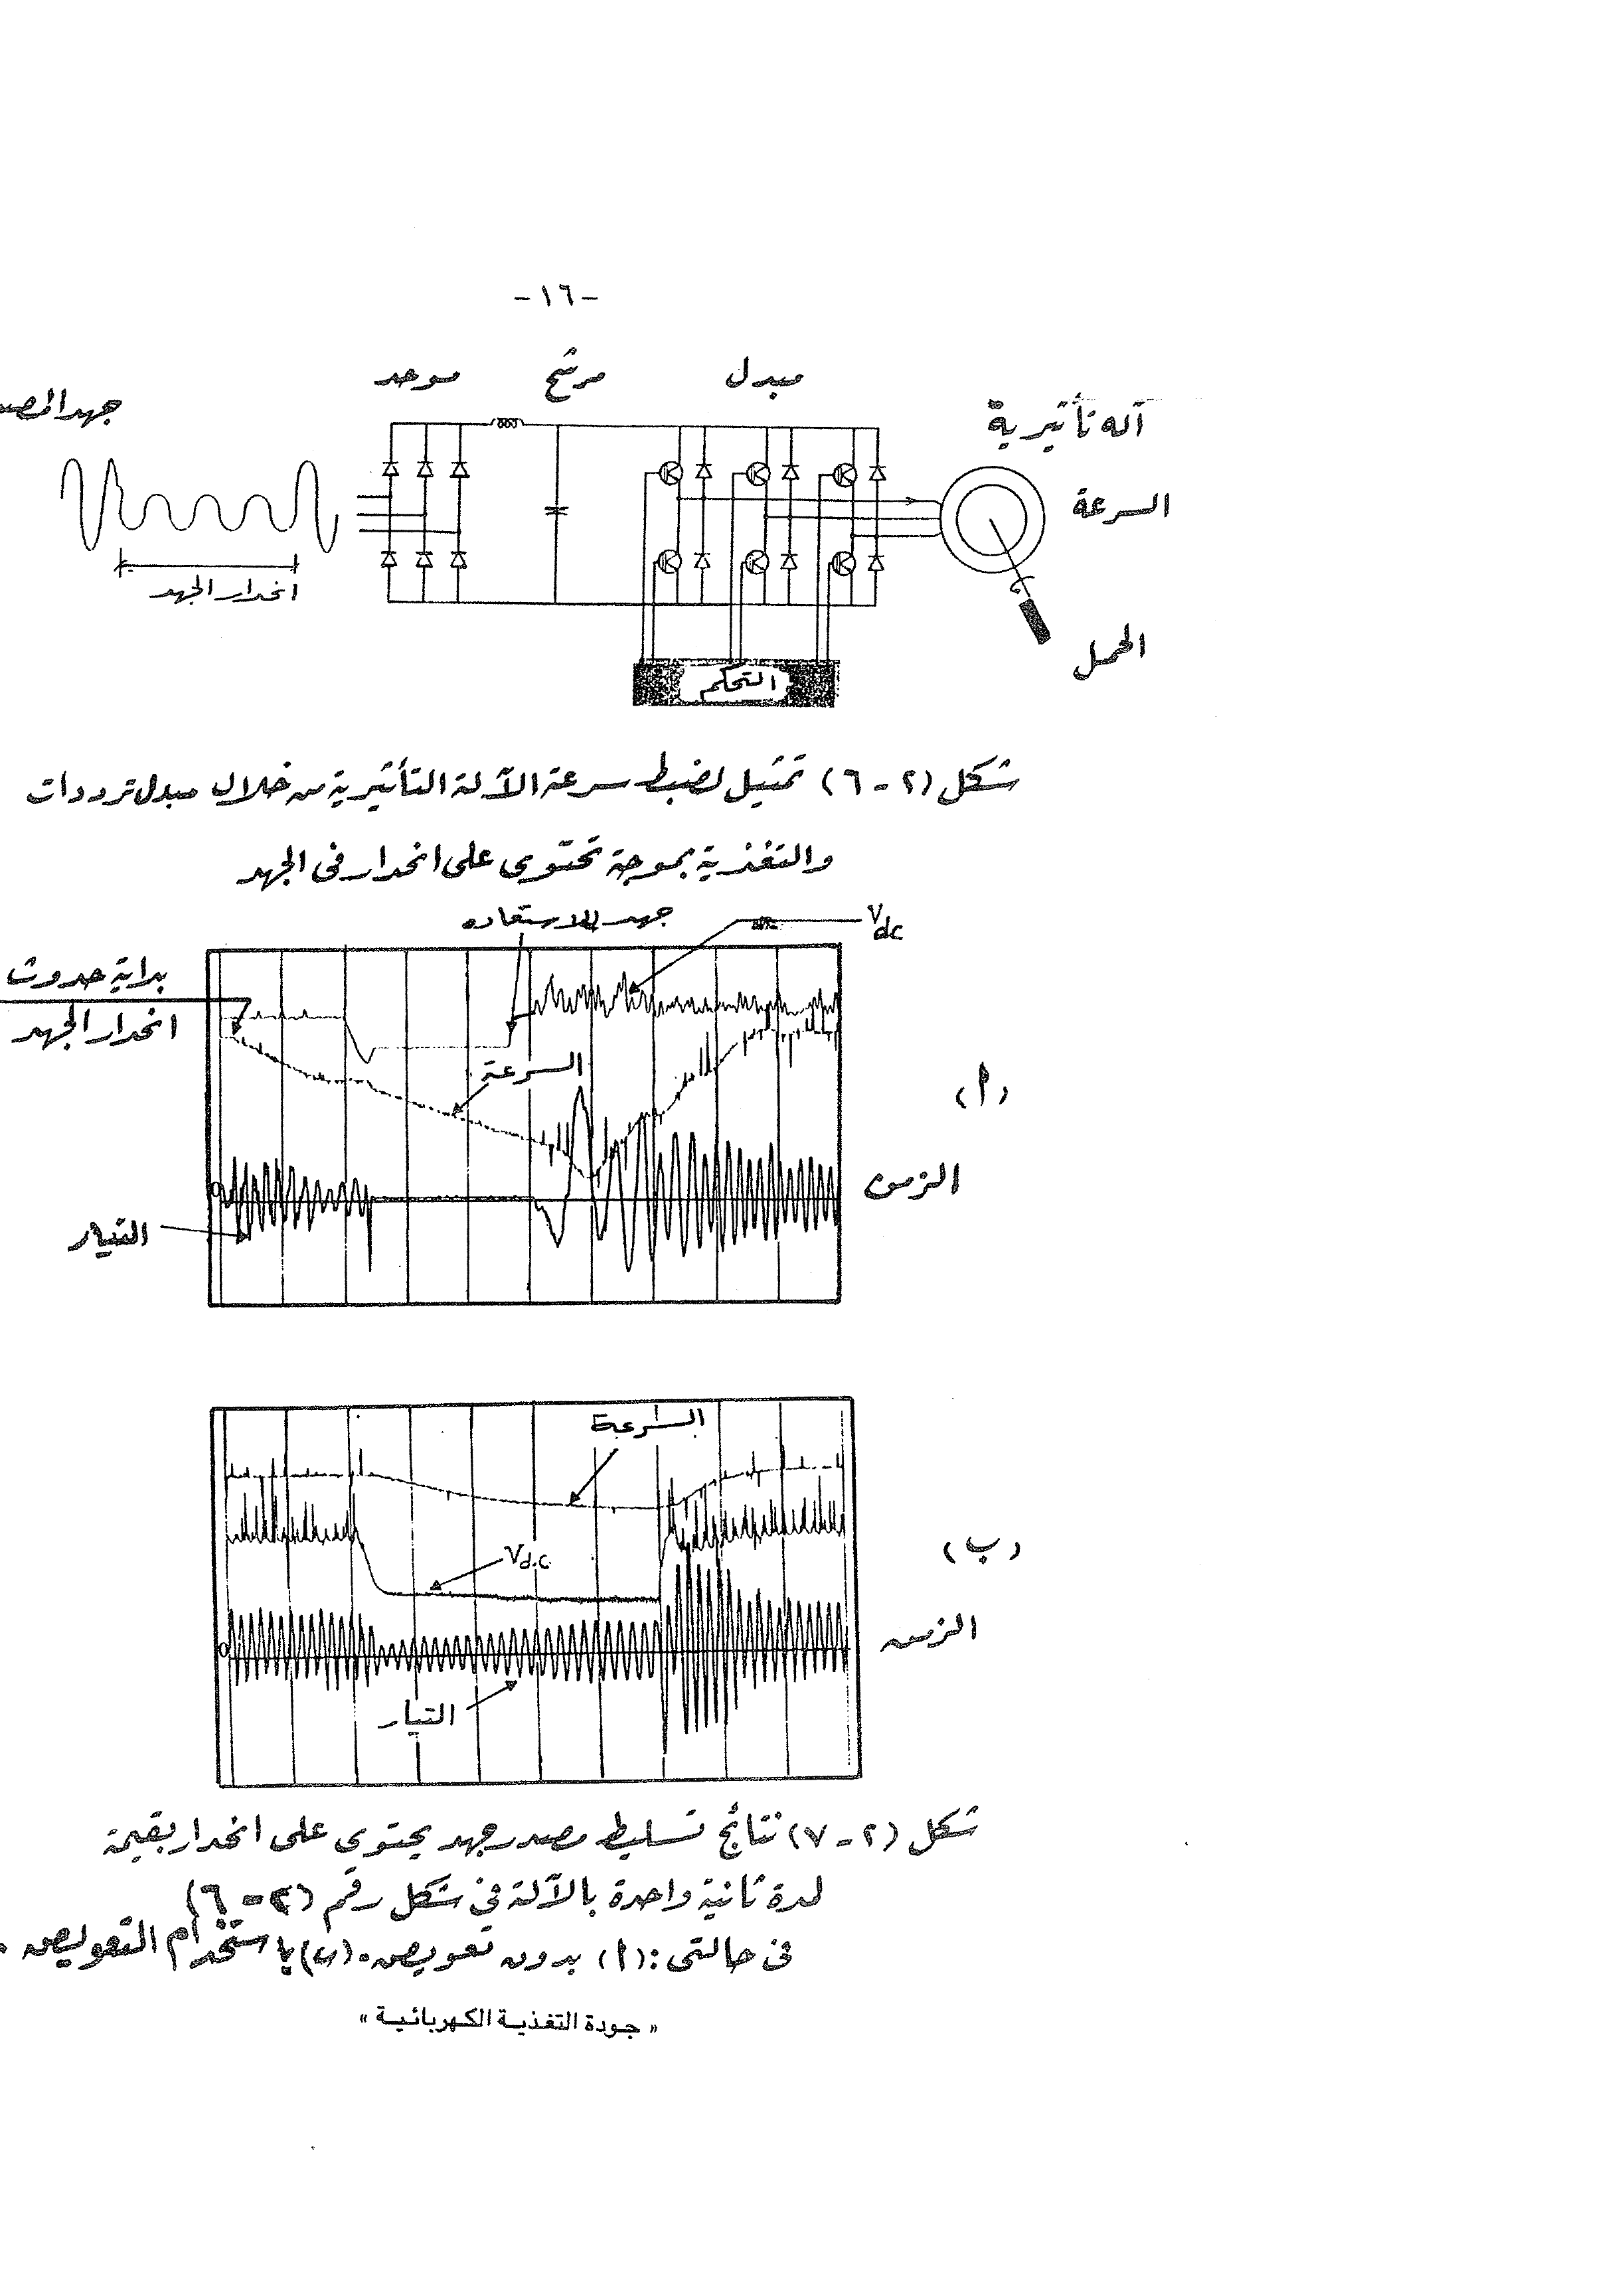 -١٦-
موحد مرشح مبدل
جهد المصد
آله تأثيرية
السرعة
انحدار الجهد
الحمل
التحكم
شكل (٢-٦) تمثيل لضبط سرعة الآلة التأثيرية من خلال مبدل ترددات
والتغذية بموجة تحتوى على انحدار فى الجهد
جهد الاستعاده
Vdc
بداية حدوث
انحدار الجهد
السرعة
(أ)
الزمن
التيار
السرعة
Vd.c.
(ب)
الزمن
التيار
شكل (٢-٧) نتائج تسليط مصدر جهد يحتوى على انحدار بقيمة
لمدة ثانية واحدة بالآلة فى شكل رقم (٢-٦)
فى حالتى: (أ) بدون تعويض. (ب) باستخدام التعويض.
« جودة التغذية الكهربائية »